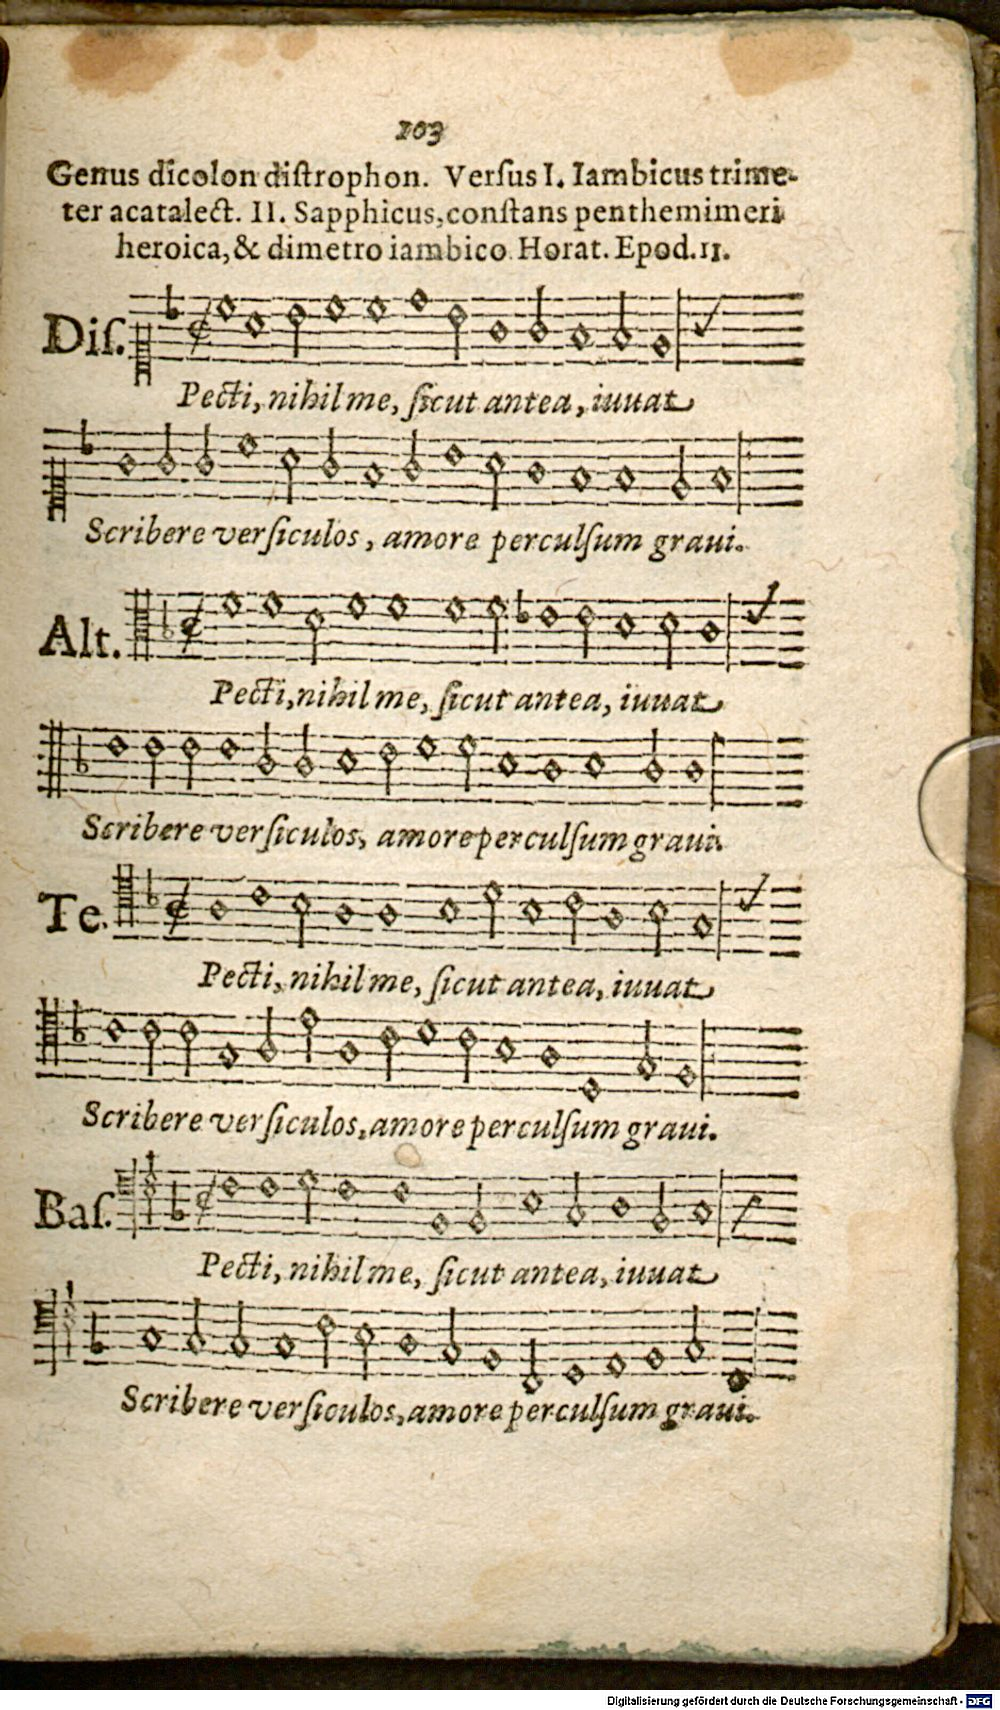 103
Genus dicolon diſtrophon. Verſus I. Iambicus trime-
ter acatalect. II. Sapphicus, conſtans penthemimeri
heroica, & dimetro iambico Horat. Epod. 11.
Diſ.
Pecti, nihil me, ſicut antea, iuuat
Scribere verſiculos, amore perculſum graui.
Alt.
Pecti, nihil me, ſicut antea, iuuat
Scribere verſiculos, amore perculſum graui.
Te.
Pecti, nihil me, ſicut antea, iuuat
Scribere verſiculos, amore perculſum graui.
Baſ.
Pecti, nihil me, ſicut antea, iuuat
Scribere verſiculos, amore perculſum graui.
Digitalisierung gefördert durch die Deutsche Forschungsgemeinschaft - DFG